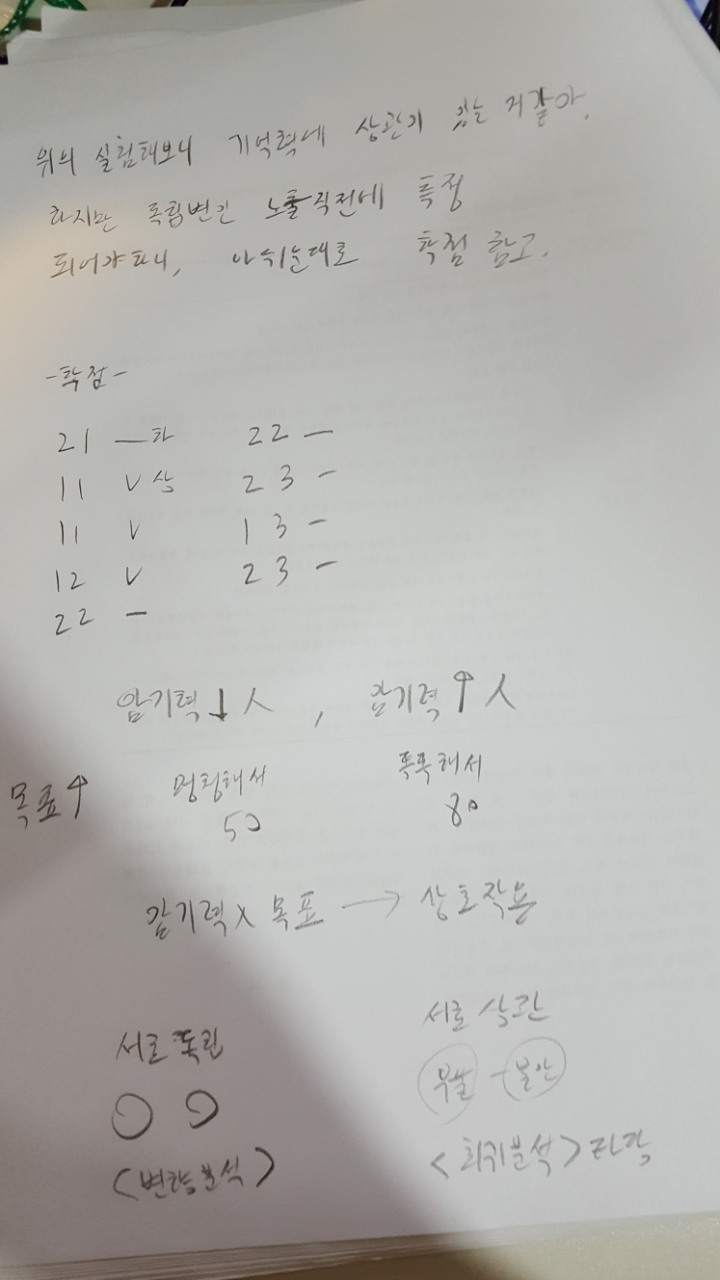 위의 실험해보니 기억력에 상관이 있는 거같아.
하지만 독립변인 노출직전에 특정
되어야하니, 아쉬운대로 학점 참고.
-학점-
21 — 하 22 —
11 V 상 23 -
11 V 13 -
12 V 23 -
22 -
암기력↓人, 암기력↑人
목표↑ 멍청해서 똑똑해서
50 80
암기력 x 목표 → 상호작용
서로 독립 서로 상관
우울 - 불안
<변량분석> <회귀분석>